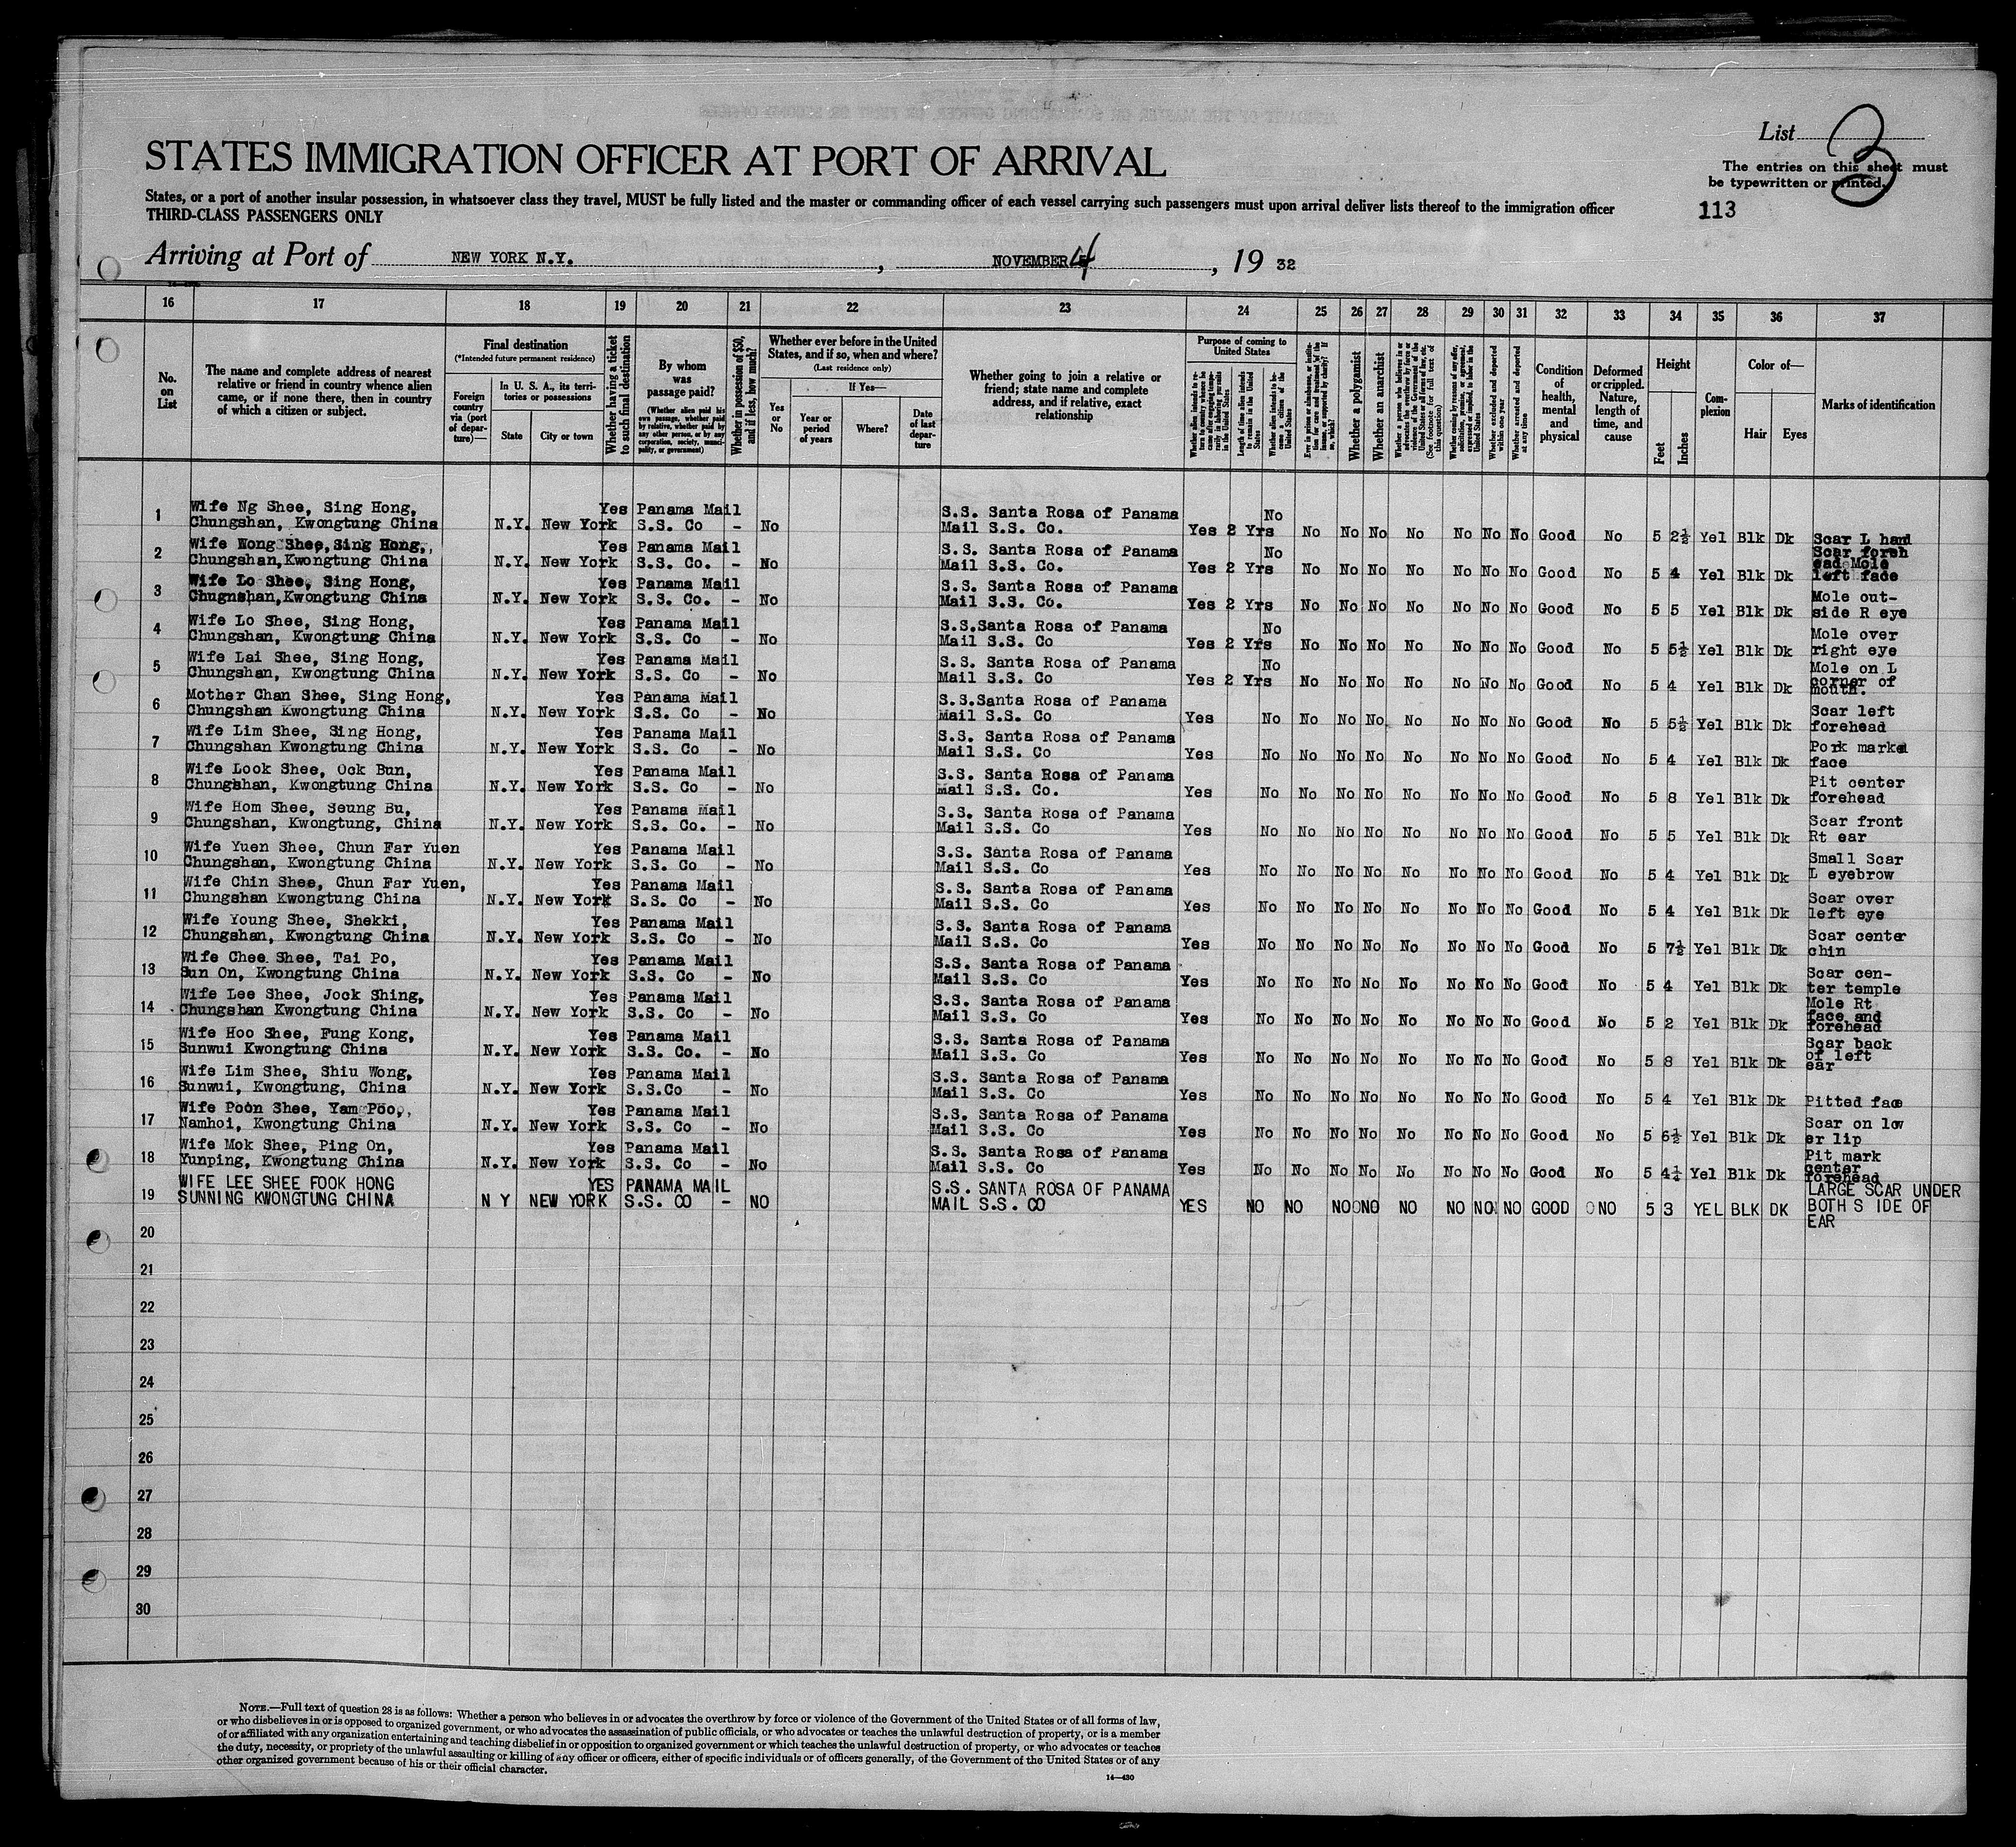 List 3
STATES IMMIGRATION OFFICER AT PORT OF ARRIVAL
The entries on this sheet must
be typewritten or printed.
States, or a port of another insular possession, in whatsoever class they travel, MUST be fully listed and the master or commanding officer of each vessel carrying such passengers must upon arrival deliver lists thereof to the immigration officer
THIRD-CLASS PASSENGERS ONLY
113
Arriving at Port of NEW YORK N.Y. , NOVEMBER 4 , 19 32
16 17 18 19 20 21 22 23 24 25 26 27 28 29 30 31 32 33 34 35 36 37
No. on List
The name and complete address of nearest relative or friend in country whence alien came, or if none there, then in country of which a citizen or subject.
Final destination
(*Intended future permanent residence)
Foreign country via (port of departure)—
In U. S. A., its territories or possessions
State
City or town
Whether having a ticket to such final destination
By whom was passage paid?
(Whether alien paid his own passage, whether paid by relative, whether paid by any other person, or by any corporation, society, municipality, or government)
Whether in possession of $50, and if less, how much?
Whether ever before in the United States, and if so, when and where?
(Last residence only)
Yes or No
If Yes—
Year or period of years
Where?
Date of last departure
Whether going to join a relative or friend; state name and complete address, and if relative, exact relationship
Purpose of coming to United States
Whether alien intends to return to country whence he came after engaging temporarily in laboring pursuits in the United States
Length of time alien intends to remain in the United States
Whether alien intends to become a citizen of the United States
Whether a polygamist
Whether an anarchist
Whether excluded and deported within one year
Whether arrested and deported at any time
Condition of health, mental and physical
Deformed or crippled. Nature, length of time, and cause
Height
Feet
Inches
Complexion
Color of—
Hair
Eyes
Marks of identification
1 Wife Ng Shee, Sing Hong, Chungshan, Kwongtung China N.Y. New York Yes Panama Mail S.S. Co - No S.S. Santa Rosa of Panama Mail S.S. Co. Yes 2 Yrs No No No No No No No No Good No 5 2½ Yel Blk Dk Scar L hand
2 Wife Wong Shee, Sing Hong, Chungshan, Kwongtung China N.Y. New York Yes Panama Mail S.S. Co. - No S.S. Santa Rosa of Panama Mail S.S. Co. Yes 2 Yrs No No No No No No No No Good No 5 4 Yel Blk Dk Scar foreh ead Mole left face
3 Wife Lo Shee, Sing Hong, Chugnshan, Kwongtung China N.Y. New York Yes Panama Mail S.S. Co. - No S.S. Santa Rosa of Panama Mail S.S. Co. Yes 2 Yrs No No No No No No No Good No 5 5 Yel Blk Dk Mole out- side R eye
4 Wife Lo Shee, Sing Hong, Chungshan, Kwongtung China N.Y. New York Yes Panama Mail S.S. Co - No S.S.Santa Rosa of Panama Mail S.S. Co Yes 2 Yrs No No No No No No No No Good No 5 5½ Yel Blk Dk Mole over right eye
5 Wife Lai Shee, Sing Hong, Chungshan, Kwongtung China N.Y. New York Yes Panama Mail S.S. Co - No S.S. Santa Rosa of Panama Mail S.S. Co Yes 2 Yrs No No No No No No No No Good No 5 4 Yel Blk Dk Mole on L corner of mouth.
6 Mother Chan Shee, Sing Hong, Chungshan Kwongtung China N.Y. New York Yes Panama Mail S.S. Co - No S.S.Santa Rosa of Panama Mail S.S. Co Yes No No No No No No No No Good No 5 5½ Yel Blk Dk Scar left forehead
7 Wife Lim Shee, Sing Hong, Chungshan Kwongtung China N.Y. New York Yes Panama Mail S.S. Co - No S.S. Santa Rosa of Panama Mail S.S. Co Yes No No No No No No No No Good No 5 4 Yel Blk Dk Pork marked face
8 Wife Look Shee, Ock Bun, Chungshan, Kwongtung China N.Y. New York Yes Panama Mail S.S. Co - No S.S. Santa Rosa of Panama Mail S.S. Co. Yes No No No No No No No No Good No 5 8 Yel Blk Dk Pit center forehead
9 Wife Hom Shee, Seung Bu, Chungshan, Kwongtung, China N.Y. New York Yes Panama Mail S.S. Co. - No S.S. Santa Rosa of Panama Mail S.S. Co Yes No No No No No No No No Good No 5 5 Yel Blk Dk Scar front Rt ear
10 Wife Yuen Shee, Chun Far Yuen Chungshan, Kwongtung China N.Y. New York Yes Panama Mail S.S. Co - No S.S. Santa Rosa of Panama Mail S.S. Co Yes No No No No No No No No Good No 5 4 Yel Blk Dk Small Scar L eyebrow
11 Wife Chin Shee, Chun Far Yuen, Chungshan Kwongtung China N.Y. New York Yes Panama Mail S.S. Co - No S.S. Santa Rosa of Panama Mail S.S. Co Yes No No No No No No No No Good No 5 4 Yel Blk Dk Scar over left eye
12 Wife Young Shee, Shekki, Chungshan, Kwongtung China N.Y. New York Yes Panama Mail S.S. Co - No S.S. Santa Rosa of Panama Mail S.S. Co Yes No No No No No No No No Good No 5 7½ Yel Blk Dk Scar center chin
13 Wife Chee Shee, Tai Po, Sun On, Kwongtung China N.Y. New York Yes Panama Mail S.S. Co - No S.S. Santa Rosa of Panama Mail S.S. Co Yes No No No No No No No No Good No 5 4 Yel Blk Dk Scar cen- ter temple
14 Wife Lee Shee, Jock Shing, Chungshan Kwongtung China N.Y. New York Yes Panama Mail S.S. Co - No S.S. Santa Rosa of Panama Mail S.S. Co Yes No No No No No No No No Good No 5 2 Yel Blk Dk Mole Rt face and forehead
15 Wife Hoo Shee, Fung Kong, Sunwui Kwongtung China N.Y. New York Yes Panama Mail S.S. Co. - No S.S. Santa Rosa of Panama Mail S.S. Co Yes No No No No No No No No Good No 5 8 Yel Blk Dk Scar back of left ear
16 Wife Lim Shee, Shiu Wong, Sunwui, Kwongtung, China N.Y. New York Yes Panama Mail S.S.Co - No S.S. Santa Rosa of Panama Mail S.S. Co Yes No No No No No No No No Good No 5 4 Yel Blk Dk Pitted face
17 Wife Poon Shee, Yam Poo, Namhoi, Kwongtung China N.Y. New York Yes Panama Mail S.S. Co - No S.S. Santa Rosa of Panama Mail S.S. Co Yes No No No No No No No No Good No 5 6½ Yel Blk Dk Scar on low er lip
18 Wife Mok Shee, Ping On, Yunping, Kwongtung China N.Y. New York Yes Panama Mail S.S. Co - No S.S. Santa Rosa of Panama Mail S.S. Co Yes No No No No No No No No Good No 5 4¼ Yel Blk Dk Pit mark center forehead
19 WIFE LEE SHEE FOOK HONG SUNNING KWONGTUNG CHINA N Y NEW YORK YES PANAMA MAIL S.S. CO - NO S.S. SANTA ROSA OF PANAMA MAIL S.S. CO YES NO NO NO NO NO NO NO NO GOOD NO 5 3 YEL BLK DK LARGE SCAR UNDER BOTH S IDE OF EAR
20
21
22
23
24
25
26
27
28
29
30
NOTE.—Full text of question 28 is as follows: Whether a person who believes in or advocates the overthrow by force or violence of the Government of the United States or of all forms of law,
or who disbelieves in or is opposed to organized government, or who advocates the assassination of public officials, or who advocates or teaches the unlawful destruction of property, or is a member
of or affiliated with any organization entertaining and teaching disbelief in or opposition to organized government or which teaches the unlawful destruction of property, or who advocates or teaches
the duty, necessity, or propriety of the unlawful assaulting or killing of any officer or officers, either of specific individuals or of officers generally, of the Government of the United States or of any
other organized government because of his or their official character.
14—430